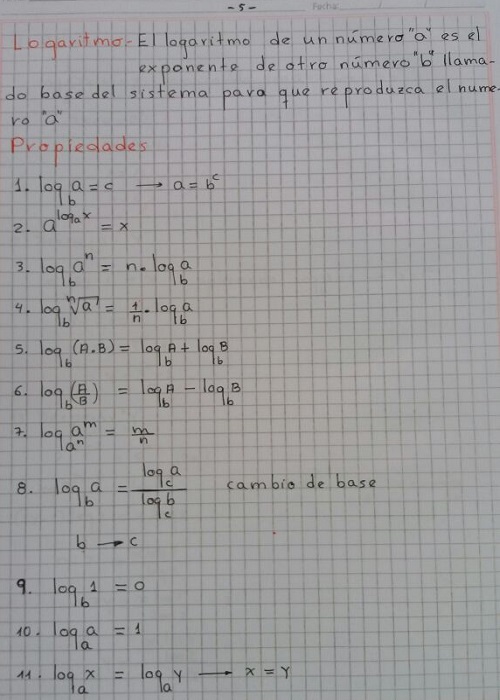 - 5 -
Fecha
Logaritmo.- El logaritmo de un número "a" es el
exponente de otro número "b" llama-
do base del sistema para que reproduzca el nume-
ro "a"
Propiedades
1. log_b a = c → a = b^c
2. a^{log_a x} = x
3. log_b a^n = n. log_b a
4. log_b ⁿ√a = 1/n . log_b a
5. log_b (A.B) = log_b A + log_b B
6. log_b (A/B) = log_b A - log_b B
7. log_{a^n} a^m = m/n
8. log_b a = log_c a / log_c b cambio de base
b → c
9. log_b 1 = 0
10. log_a a = 1
11. log_a x = log_a y → x = y